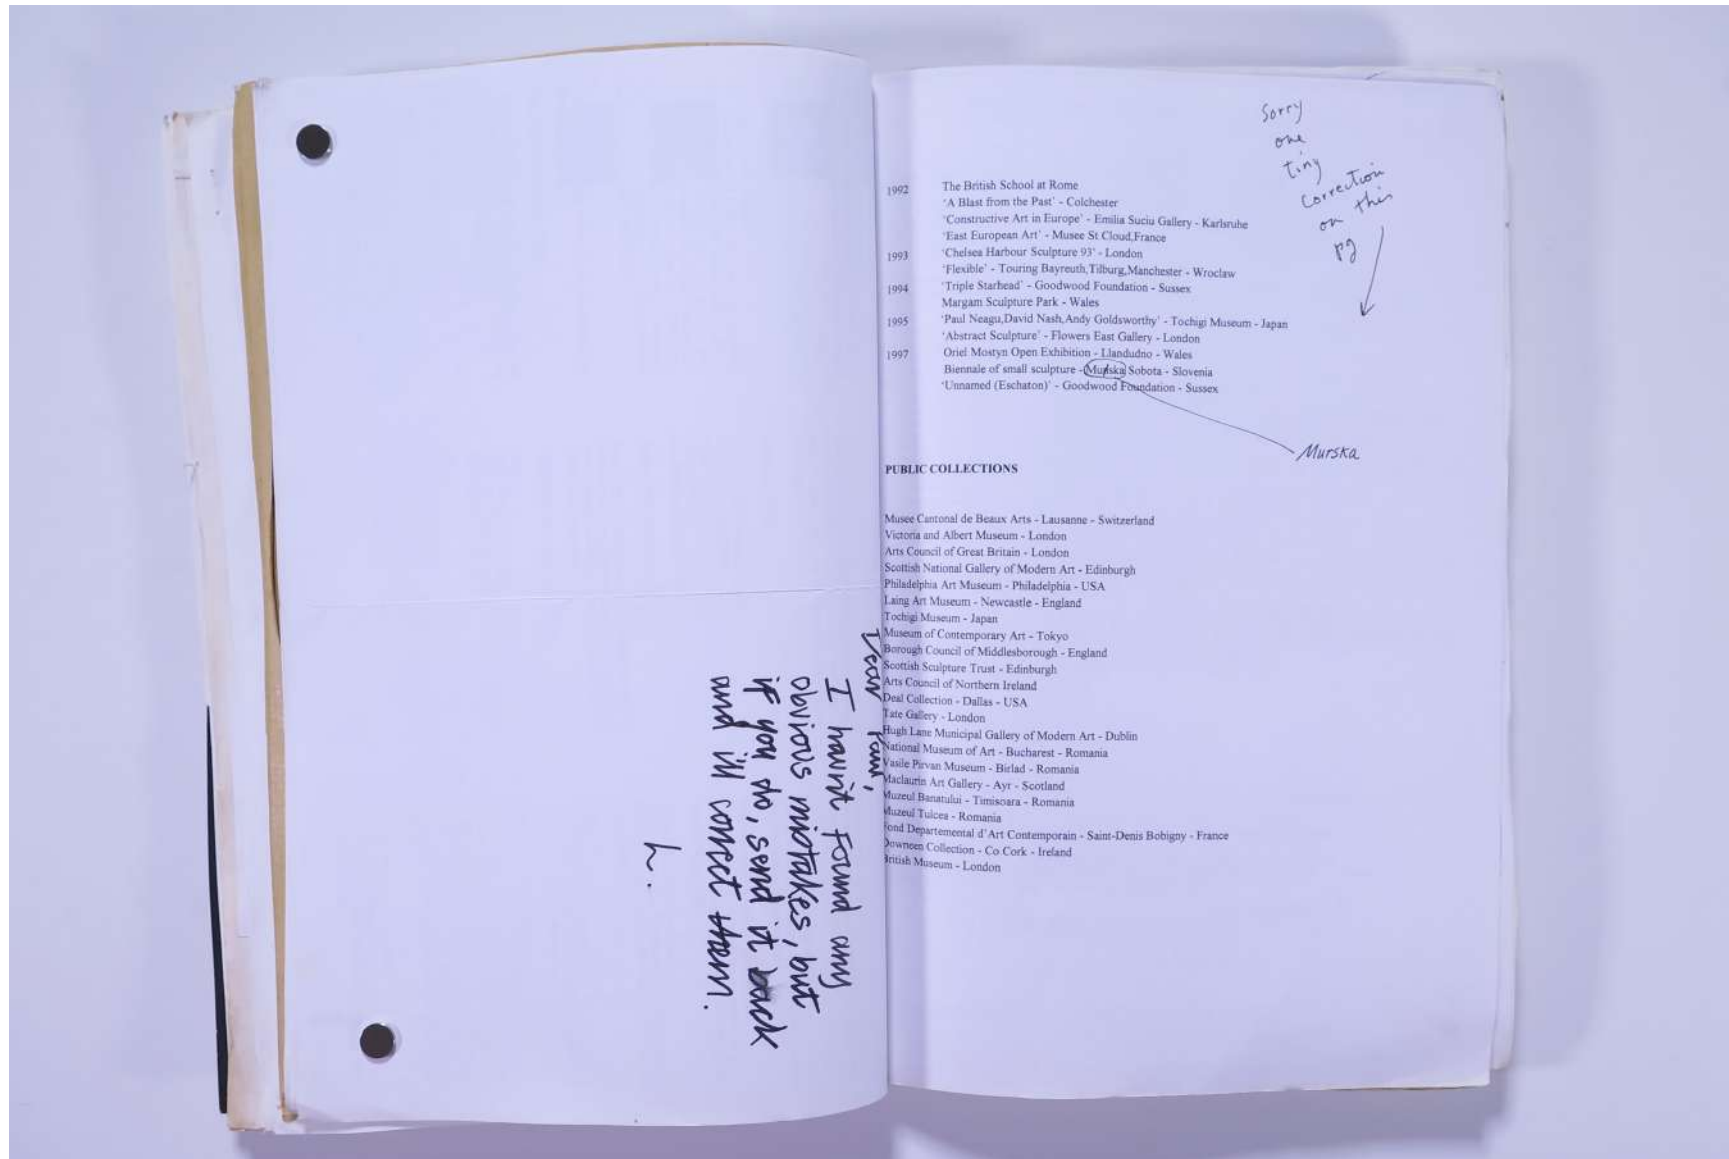 Dear Paul,
I havn't found any
obvious mistakes, but
if you do, send it back
and i'll correct them.
h.
Sorry
one
tiny
correction
on this
pg
1992 The British School at Rome
'A Blast from the Past' - Colchester
'Constructive Art in Europe' - Emilia Suciu Gallery - Karlsruhe
'East European Art' - Musee St Cloud,France
1993 'Chelsea Harbour Sculpture 93' - London
'Flexible' - Touring Bayreuth,Tilburg,Manchester - Wroclaw
1994 'Triple Starhead' - Goodwood Foundation - Sussex
Margam Sculpture Park - Wales
1995 'Paul Neagu,David Nash,Andy Goldsworthy' - Tochigi Museum - Japan
'Abstract Sculpture' - Flowers East Gallery - London
1997 Oriel Mostyn Open Exhibition - Llandudno - Wales
Biennale of small sculpture - Sobota - Slovenia
'Unnamed (Eschaton)' - Goodwood Foundation - Sussex
Murska
PUBLIC COLLECTIONS
Musee Cantonal de Beaux Arts - Lausanne - Switzerland
Victoria and Albert Museum - London
Arts Council of Great Britain - London
Scottish National Gallery of Modern Art - Edinburgh
Philadelphia Art Museum - Philadelphia - USA
Laing Art Museum - Newcastle - England
Tochigi Museum - Japan
Museum of Contemporary Art - Tokyo
Borough Council of Middlesborough - England
Scottish Sculpture Trust - Edinburgh
Arts Council of Northern Ireland
Deal Collection - Dallas - USA
Tate Gallery - London
Hugh Lane Municipal Gallery of Modern Art - Dublin
National Museum of Art - Bucharest - Romania
Vasile Pirvan Museum - Birlad - Romania
Maclaurin Art Gallery - Ayr - Scotland
Muzeul Banatului - Timisoara - Romania
Muzeul Tulcea - Romania
Fond Departemental d'Art Contemporain - Saint-Denis Bobigny - France
Downeen Collection - Co Cork - Ireland
British Museum - London